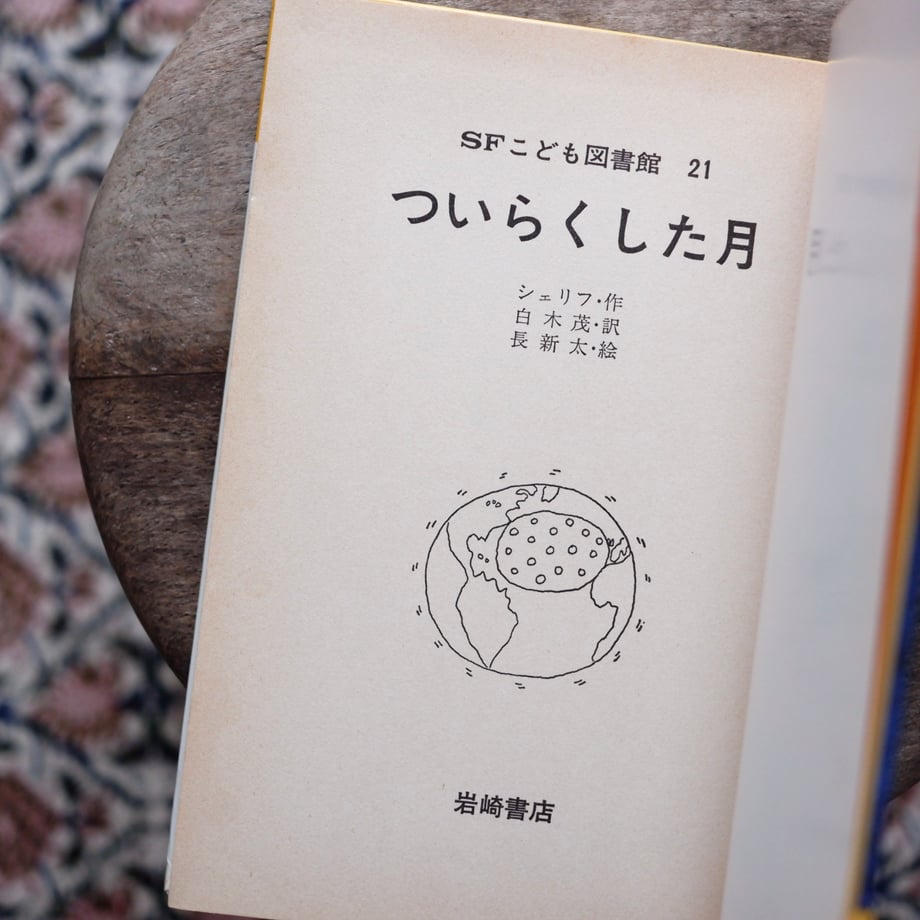 SFこども図書館 21
ついらくした月
シェリフ・作
白木茂・訳
長新太・絵
岩崎書店